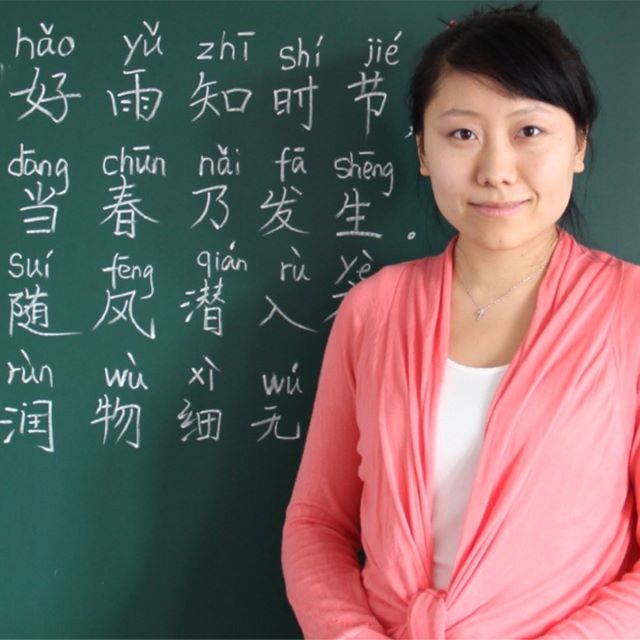 hǎo yǔ zhī shí jié
好雨知时节,
dāng chūn nǎi fā shēng
当春乃发生。
suí fēng qián rù yè
随风潜入
rùn wù xì wú
润物细无